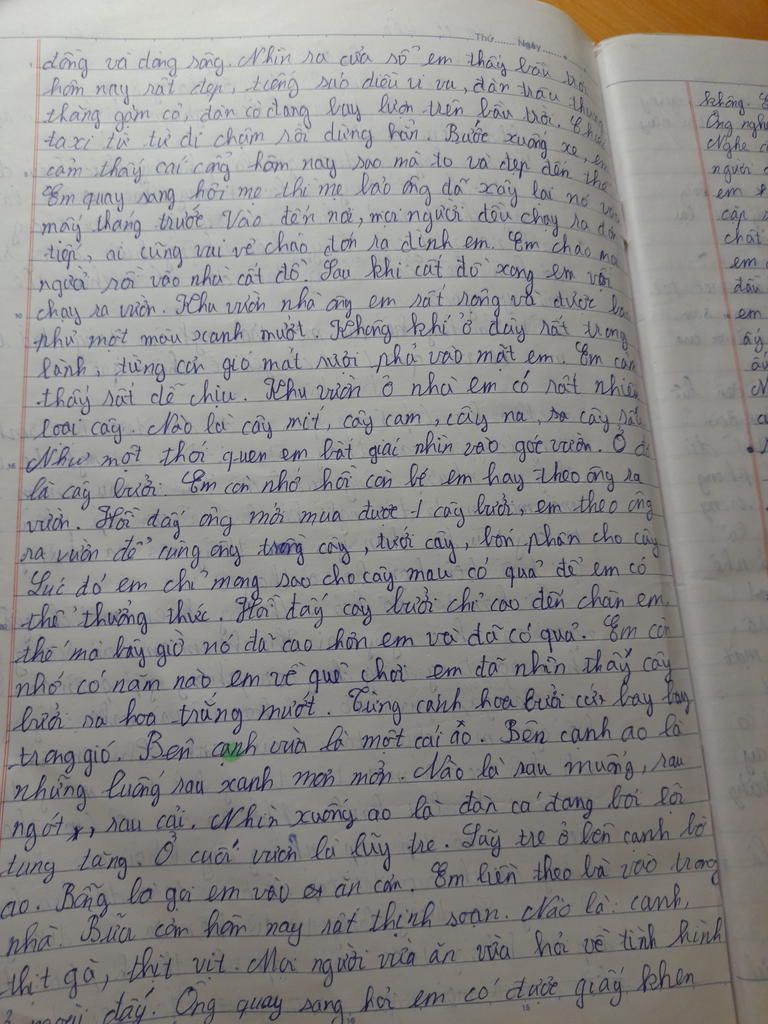 Thứ...... Ngày......
đồng và dòng sông. Nhìn ra cửa sổ em thấy bầu trời
hôm nay rất đẹp, tiếng sáo diều vi vu, đàn trâu thung
thăng gặm cỏ, đàn cò đang bay lượn trên bầu trời. Chiếc
taxi từ từ đi chậm rồi dừng hẳn. Bước xuống xe, em
cảm thấy cái cổng hôm nay sao mà to và đẹp đến thế
Em quay sang hỏi mẹ thì mẹ bảo ông đã xây lại nó vào
mấy tháng trước. Vào đến nơi, mọi người đều chạy ra đón
tiếp, ai cũng vui vẻ chào đón ra đình em. Em chào mọi
người rồi vào nhà cất đồ. Sau khi cất đồ xong em vội
chạy ra vườn. Khu vườn nhà ông em rất rộng và được bao
phủ một màu xanh mướt. Không khí ở đây rất trong
lành, từng cơn gió mát rười phả vào mặt em. Em cảm
thấy rất dễ chịu. Khu vườn ở nhà em có rất nhiều
loại cây. Nào là cây mít, cây cam, cây na, cây
Như một thói quen em bất giác nhìn vào góc vườn. Ở đó
là cây bưởi. Em còn nhớ hồi còn bé em hay theo ông ra
vườn. Hồi đấy ông mới mua được 1 cây bưởi, em theo ông
ra vườn để cùng ông trồng cây, tưới cây, bón phân cho cây
Lúc đó em chỉ mong sao cho cây mau có quả để em có
thể thưởng thức. Hồi đấy cây bưởi chỉ cao đến chân em,
thế mà bây giờ nó đã cao hơn em và đã có quả. Em còn
nhớ có năm nào em về quê chơi em đã nhìn thấy cây
bưởi ra hoa trắng muốt. Từng cánh hoa bưởi cứ bay bay
trong gió. Bên cạnh vườn là một cái ao. Bên cạnh ao là
những luống rau xanh mơn mởn. Nào là rau muống, rau
ngót, rau cải. Nhìn xuống ao là đàn cá đang bơi lội
tung tăng. Ở cuối vườn là lũy tre. Lũy tre ở bên cạnh bờ
ao. Bỗng bà gọi em vào ăn cơm. Em liền theo bà vào trong
nhà. Bữa cơm hôm nay rất thịnh soạn. Nào là: canh,
thịt gà, thịt vịt. Mọi người vừa ăn vừa hỏi về tình hình
đấy. Ông quay sang hỏi em có được giấy khen
không.
Ông
Nghe
người
em
cặp
chất
em
đầu
em
ấy